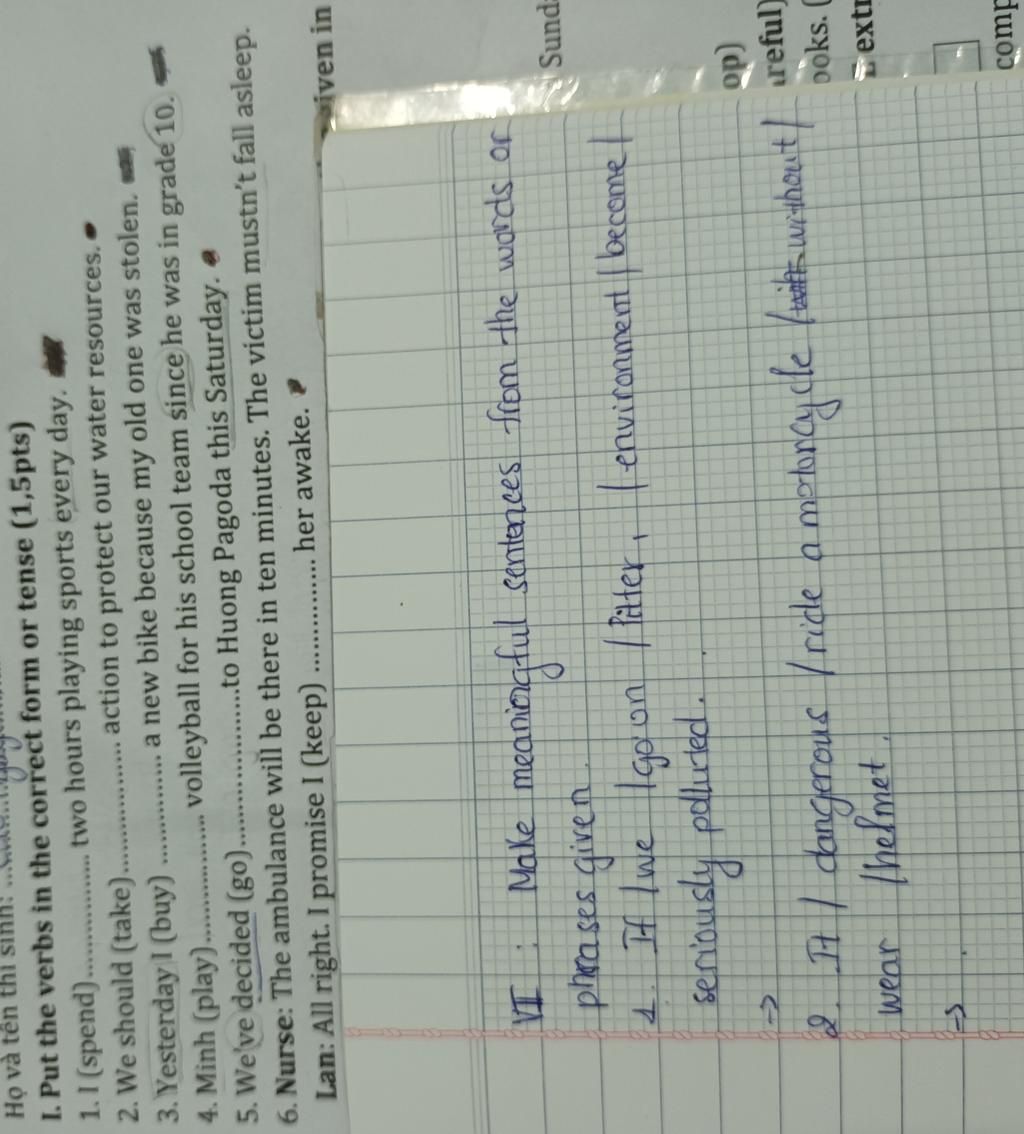 Họ và tên thí sinh:
I. Put the verbs in the correct form or tense (1,5pts)
1. I (spend)................ two hours playing sports every day.
2. We should (take)................ action to protect our water resources.
3. Yesterday I (buy) ................ a new bike because my old one was stolen.
4. Minh (play)................ volleyball for his school team since he was in grade 10.
5. We've decided (go)......................to Huong Pagoda this Saturday.
6. Nurse: The ambulance will be there in ten minutes. The victim mustn't fall asleep.
Lan: All right. I promise I (keep) ................ her awake.
VII : Make meaningful sentences from the words or
phrases given.
1. If / we / go on / litter, / environment / become /
seriously polluted.
=>
2. It / dangerous / ride a motorcycle / without /
wear / helmet.
=>
iven in
Sund
op)
reful)
ooks. (
extr
comp